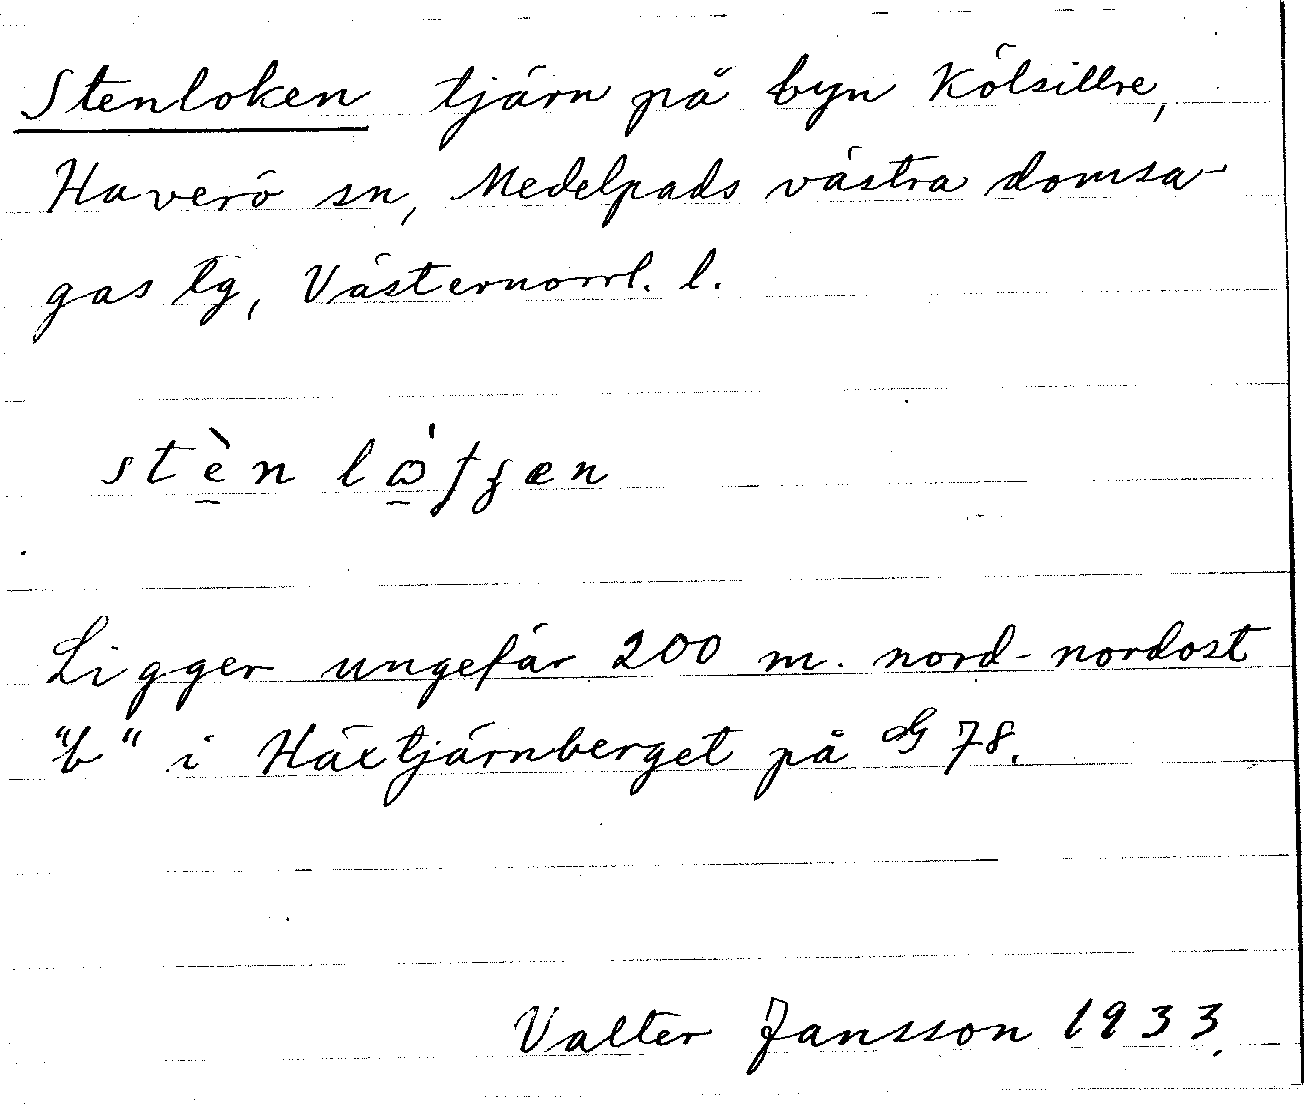 Stenloken tjärn på byn Kölsillre,
Haverö sn, Medelpads västra domsa-
gas tg, Västernorrl. l.
Ligger ungefär 200 m. nord-nordost
"b" i Häxtjärnberget på G 78.
Valter Jansson 1933.